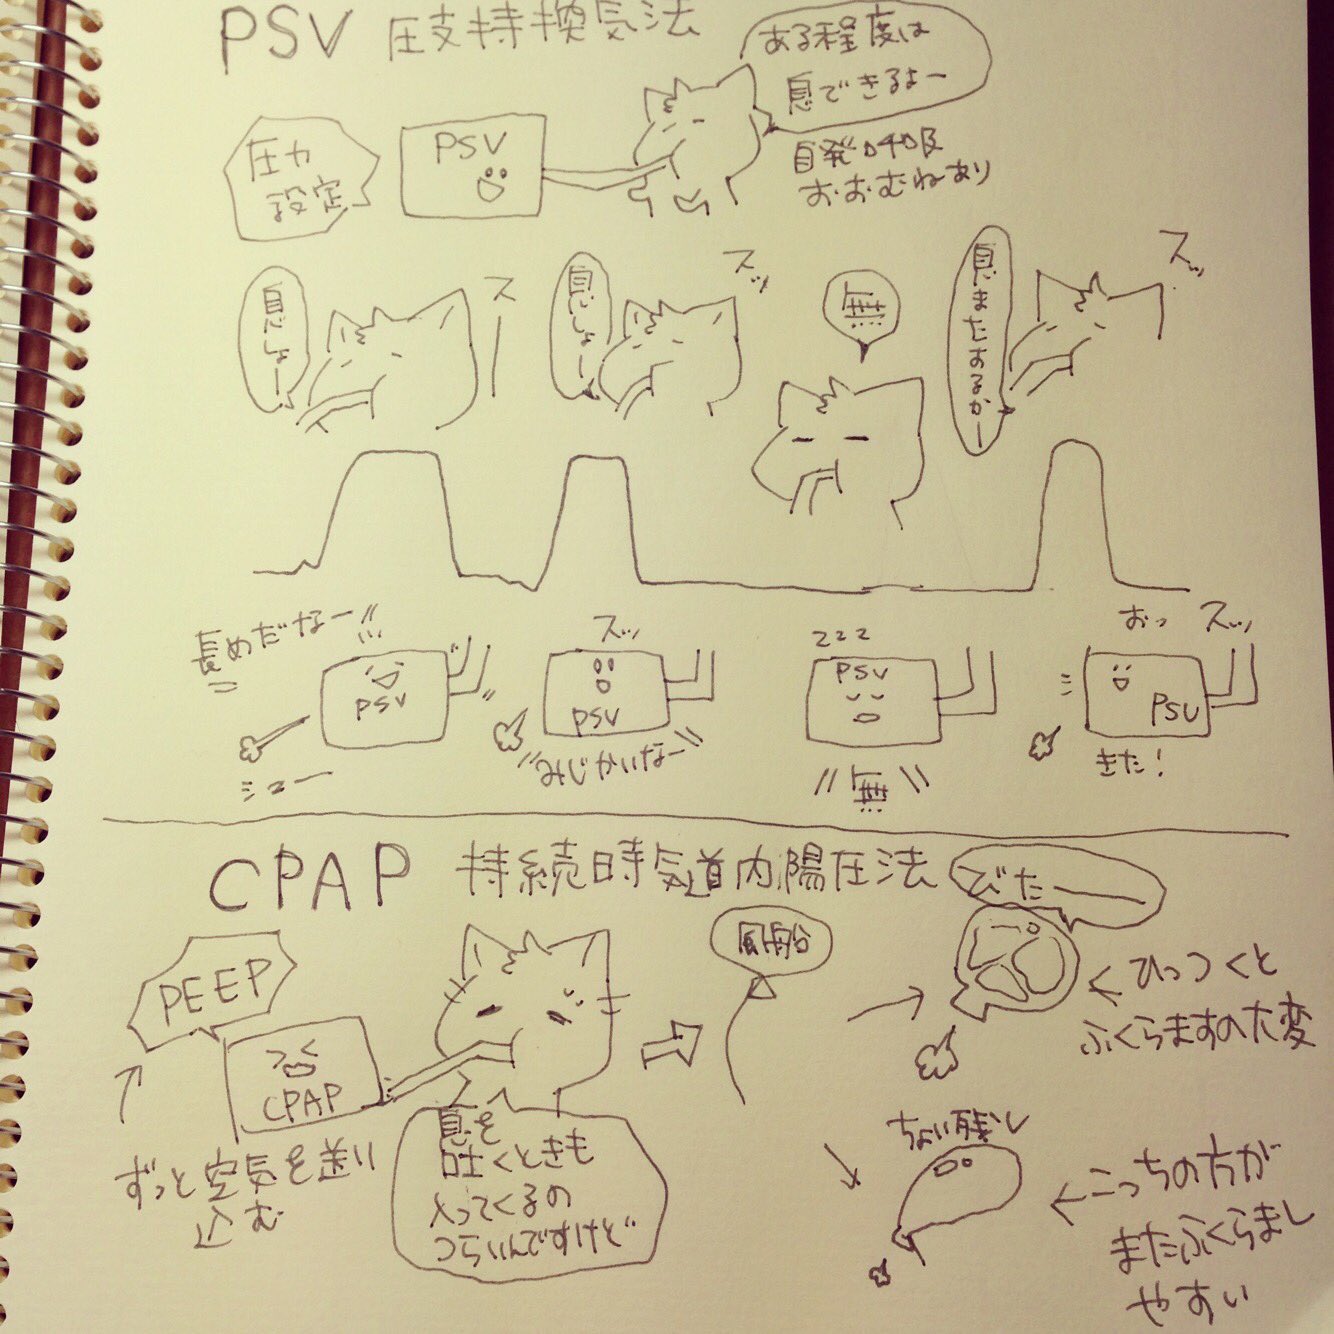 PSV 圧支持換気法
ある程度は
息できるよー
圧力
設定
PSV
自発呼吸
おおむねあり
息しよー
スー
息しよー
スッ
無
息またあるかー
スッ
長めだなー
PSV
シュー
スッ
PSV
みじかいなー
zzz
PSV
無
おっ スッ
PSV
きた!
CPAP 持続時気道内陽圧法
びたー
PEEP
CPAP
ずっと空気を送り
込む
息を
吐くときも
入ってくるの
つらいんですけど
風船
ひっつくと
ふくらますの大変
ちょい残し
こっちの方が
またふくらまし
やすい